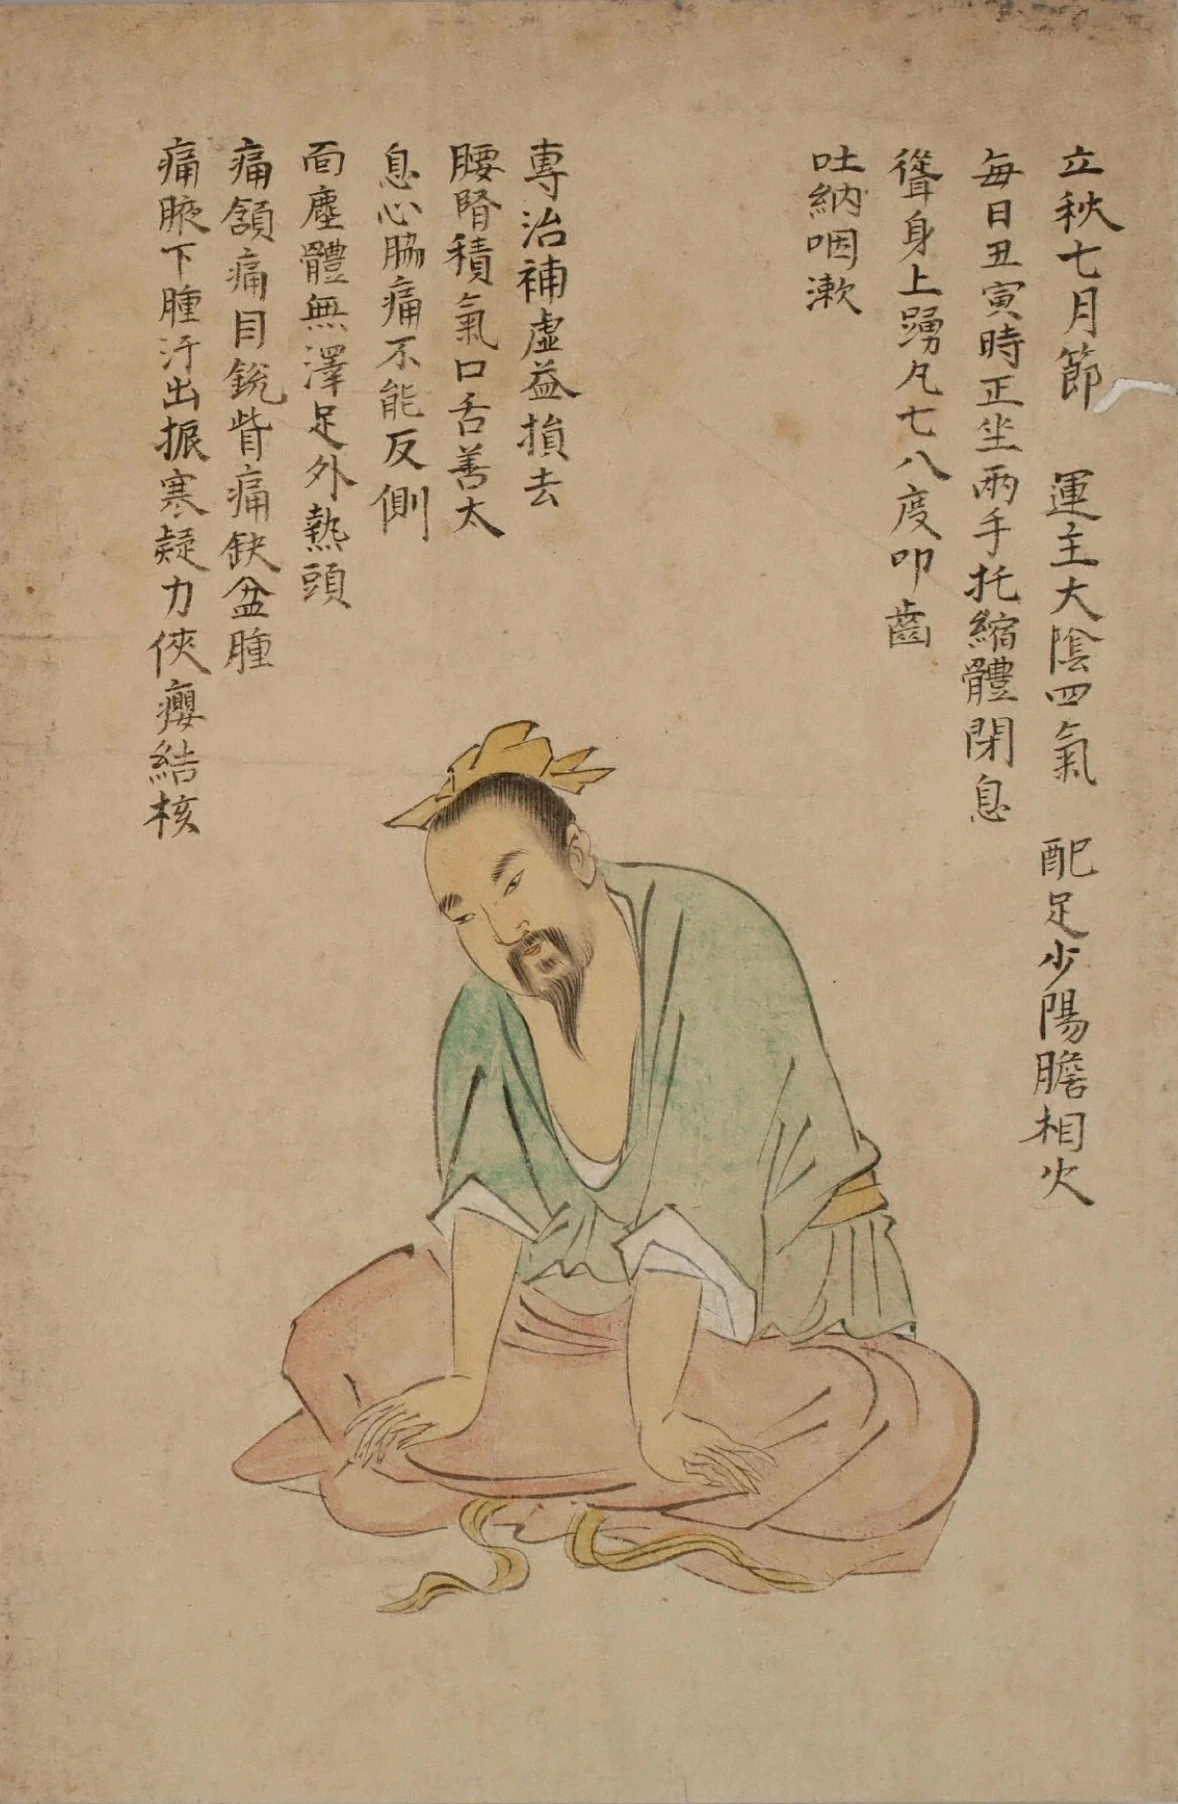 立秋七月節 運主大陰四氣 配足少陽膽相火
每日丑寅時正坐兩手托縮體閉息
聳身上踴凡七八度叩齒
吐納咽漱
專治補虛益損去
腰腎積氣口舌善太
息心脇痛不能反側
面塵體無澤足外熱頭
痛頷痛目銳眥痛缺盆腫
痛腋下腫汗出振寒疑力俠癭結核